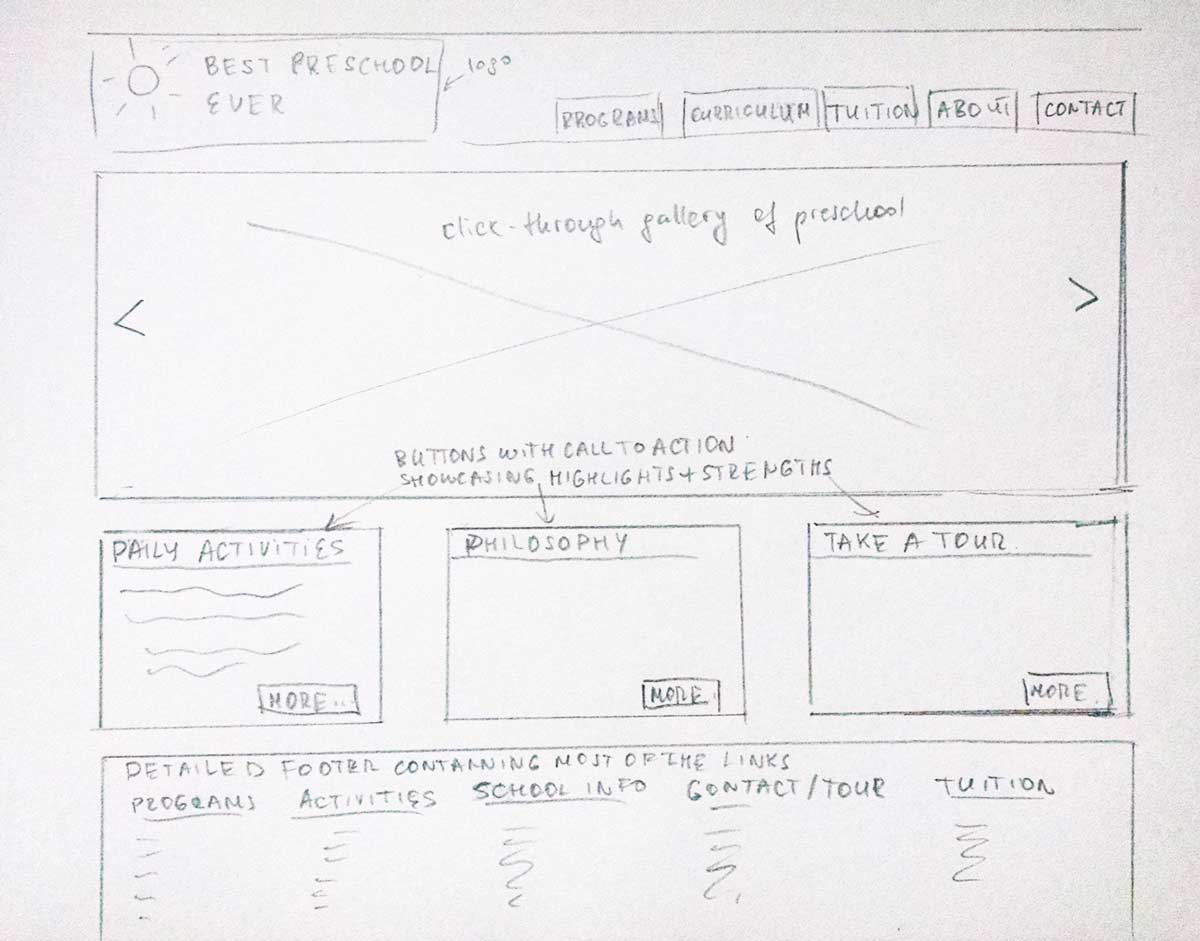 BEST PRESCHOOL
EVER
logo
PROGRAMS CURRICULUM TUITION ABOUT CONTACT
click-through gallery of preschool
< >
BUTTONS WITH CALL TO ACTION
SHOWCASING HIGHLIGHTS + STRENGTHS
DAILY ACTIVITIES
MORE...
PHILOSOPHY
MORE.
TAKE A TOUR
MORE.
DETAILED FOOTER CONTANNING MOST OF THE LINKS
PROGRAMS ACTIVITIES SCHOOL INFO CONTACT/TOUR TUITION